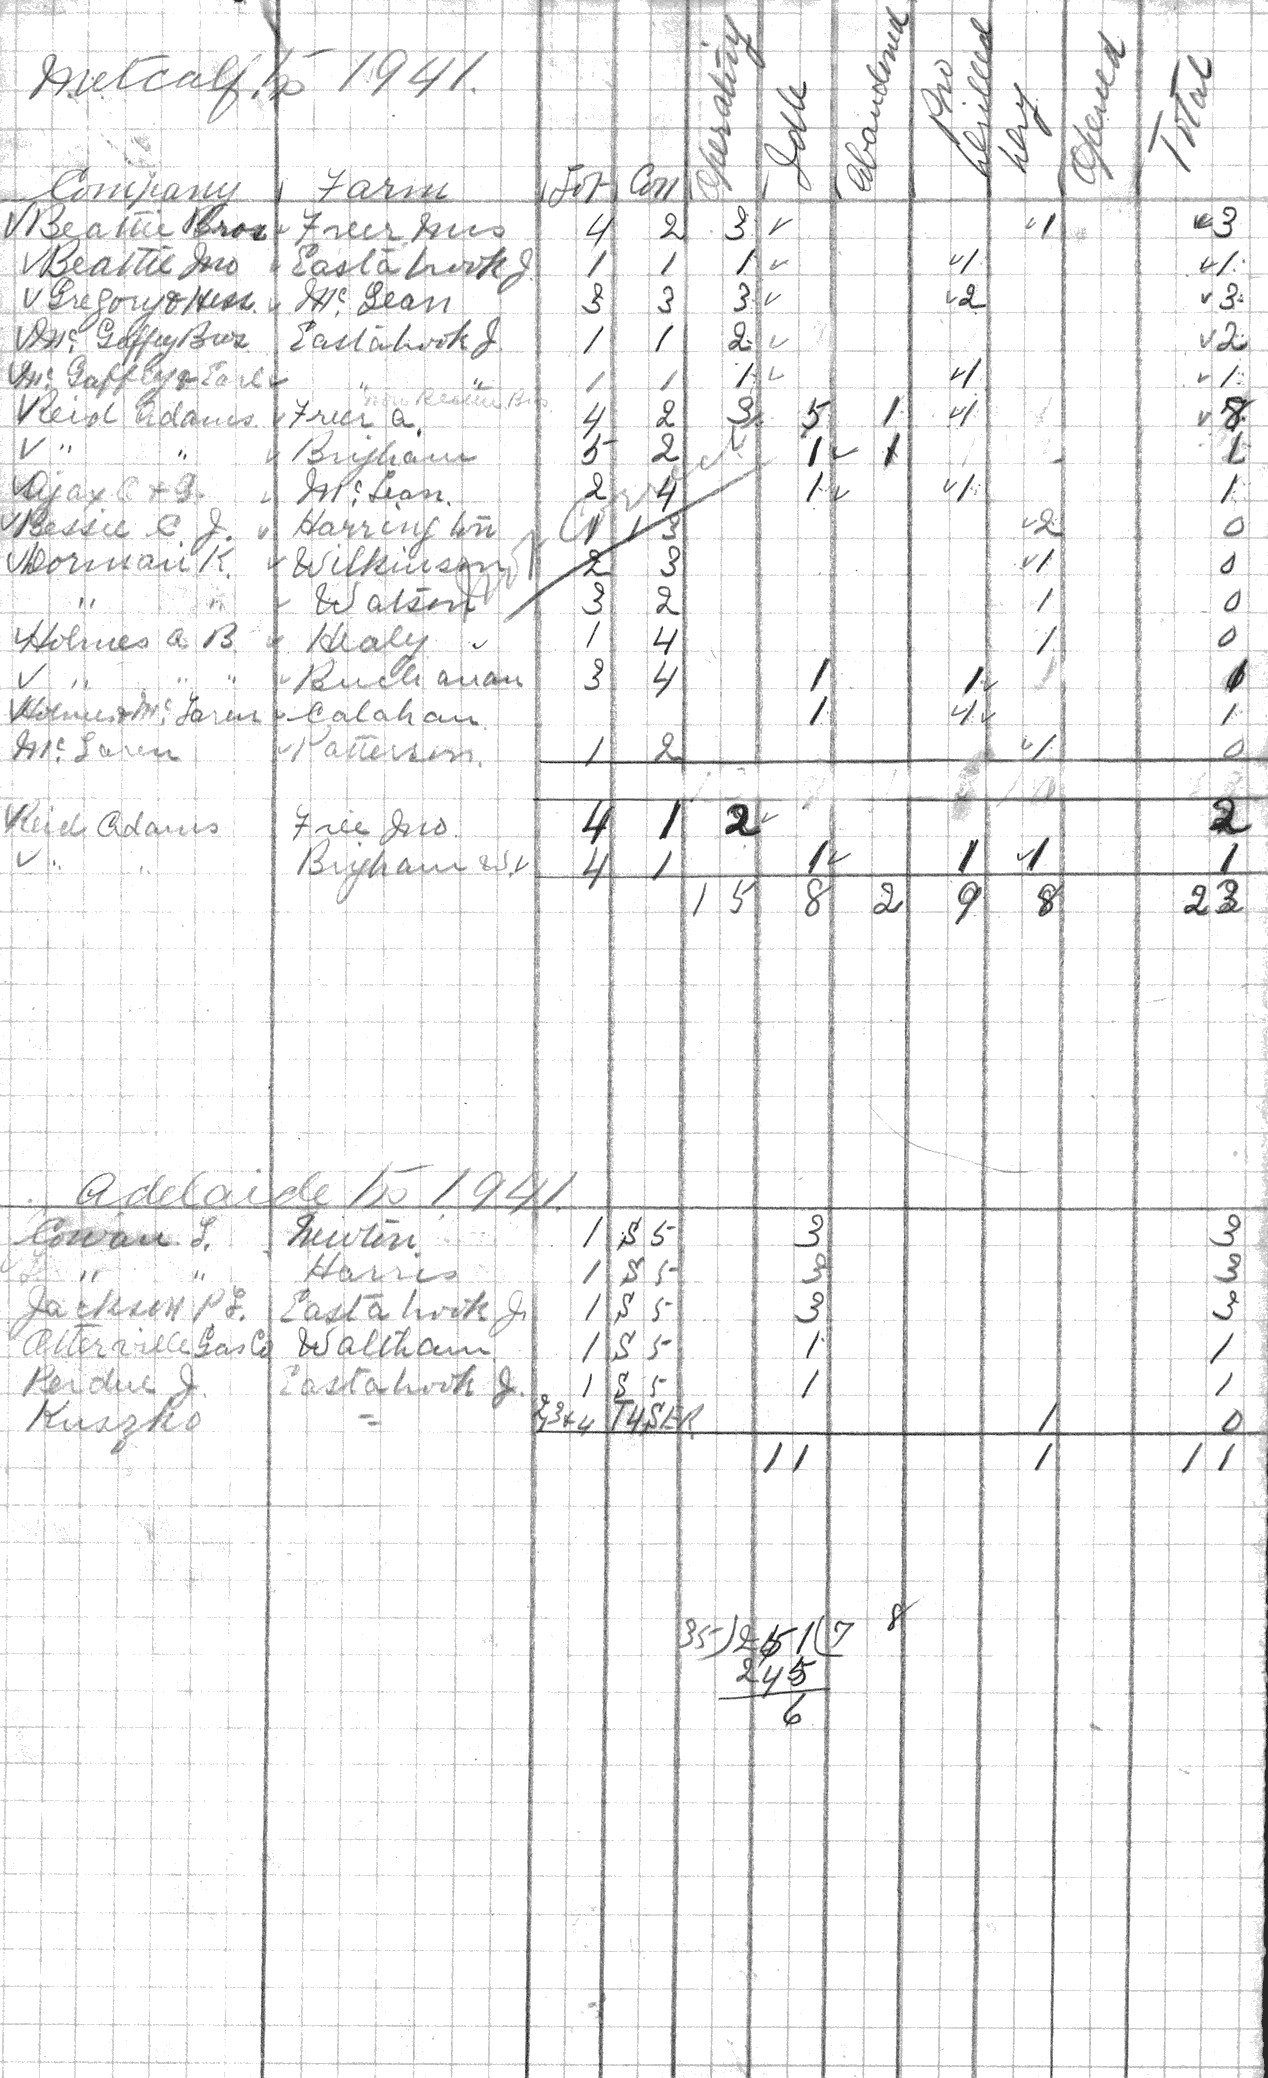 Metcalf to 1941.
Company Farm Lot Con Operating Idle Abandoned Pro drilled Dry Opened Total
✓ Beattie Bros ✓ Freer Mrs 4 2 3 ✓ ✓1 ✓3
✓ Beattie Jno ✓ Eastabrook J. 1 1 1 ✓ ✓1 ✓1
✓ Gregory & Hess. ✓ Mc Lean 3 3 3 ✓ ✓2 ✓3
✓ Mc Gaffey Bros Eastabrook J. 1 1 2 ✓ ✓2
✓ Mc Gaffey & Earl ✓ " " 1 1 1 ✓ ✓1 ✓1
now Beattie Bros
✓ Reid Adams ✓ Freer A. 4 2 3 5 1 ✓1 ✓8
✓ " " ✓ Brigham 5 2 1 ✓ 1 1
✓ Ajax O & G. ✓ Mc Lean. 2 4 1 ✓ ✓1 1
✓ Bessie C J. ✓ Harrington 1 3 ✓2 0
✓ Dorman K. ✓ Wilkinson 2 3 ✓1 0
" " ✓ Watson 3 2 1 0
✓ Holmes A B ✓ Healy ✓ 1 4 1 0
✓ " " " ✓ Buchanan 3 4 1 1 ✓ 1
✓ Holmes & Mc Laren ✓ Calahan 1 4 ✓ 1
Mc Laren ✓ Patterson. 1 2 ✓1 0
✓ Reid Adams Free Jno. 4 1 2 ✓ 2
✓ " " Brigham W. ✓ 4 1 1 ✓ 1 ✓1 1
15 8 2 9 8 23
Adelaide to 1941.
Cowan L. Newton 1 S 5 3 3
" " Harris 1 S 5 3 3
Jackson P L. Eastabrook J. 1 S 5 3 3
Otterville Gas Co Waltham 1 S 5 1 1
Perdue J. Eastabrook J. 1 S 5 1 1
Kuszko = 2,3+4 T4SER 1 0
11 1 11
35)251(7 8
245
6